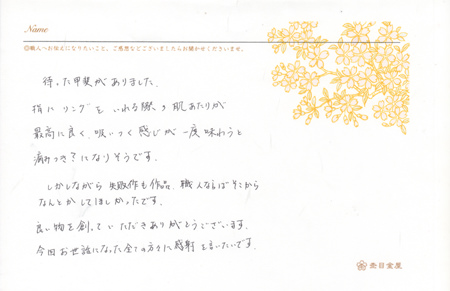 Name
◎職人へお伝えになりたいこと、ご感想などございましたらお聞かせくださいませ。
待った甲斐がありました。
指にリングをいれる際の肌あたりが
最高に良く、吸いつく感じが一度味わうと
病みつきになりそうです。
しかしながら失敗作も作品、職人ならばそこから
なんとかしてほしかったです。
良い物を創っていただきありがとうございます。
今回お世話になった全ての方々に感謝を言いたいです。
杢目金屋